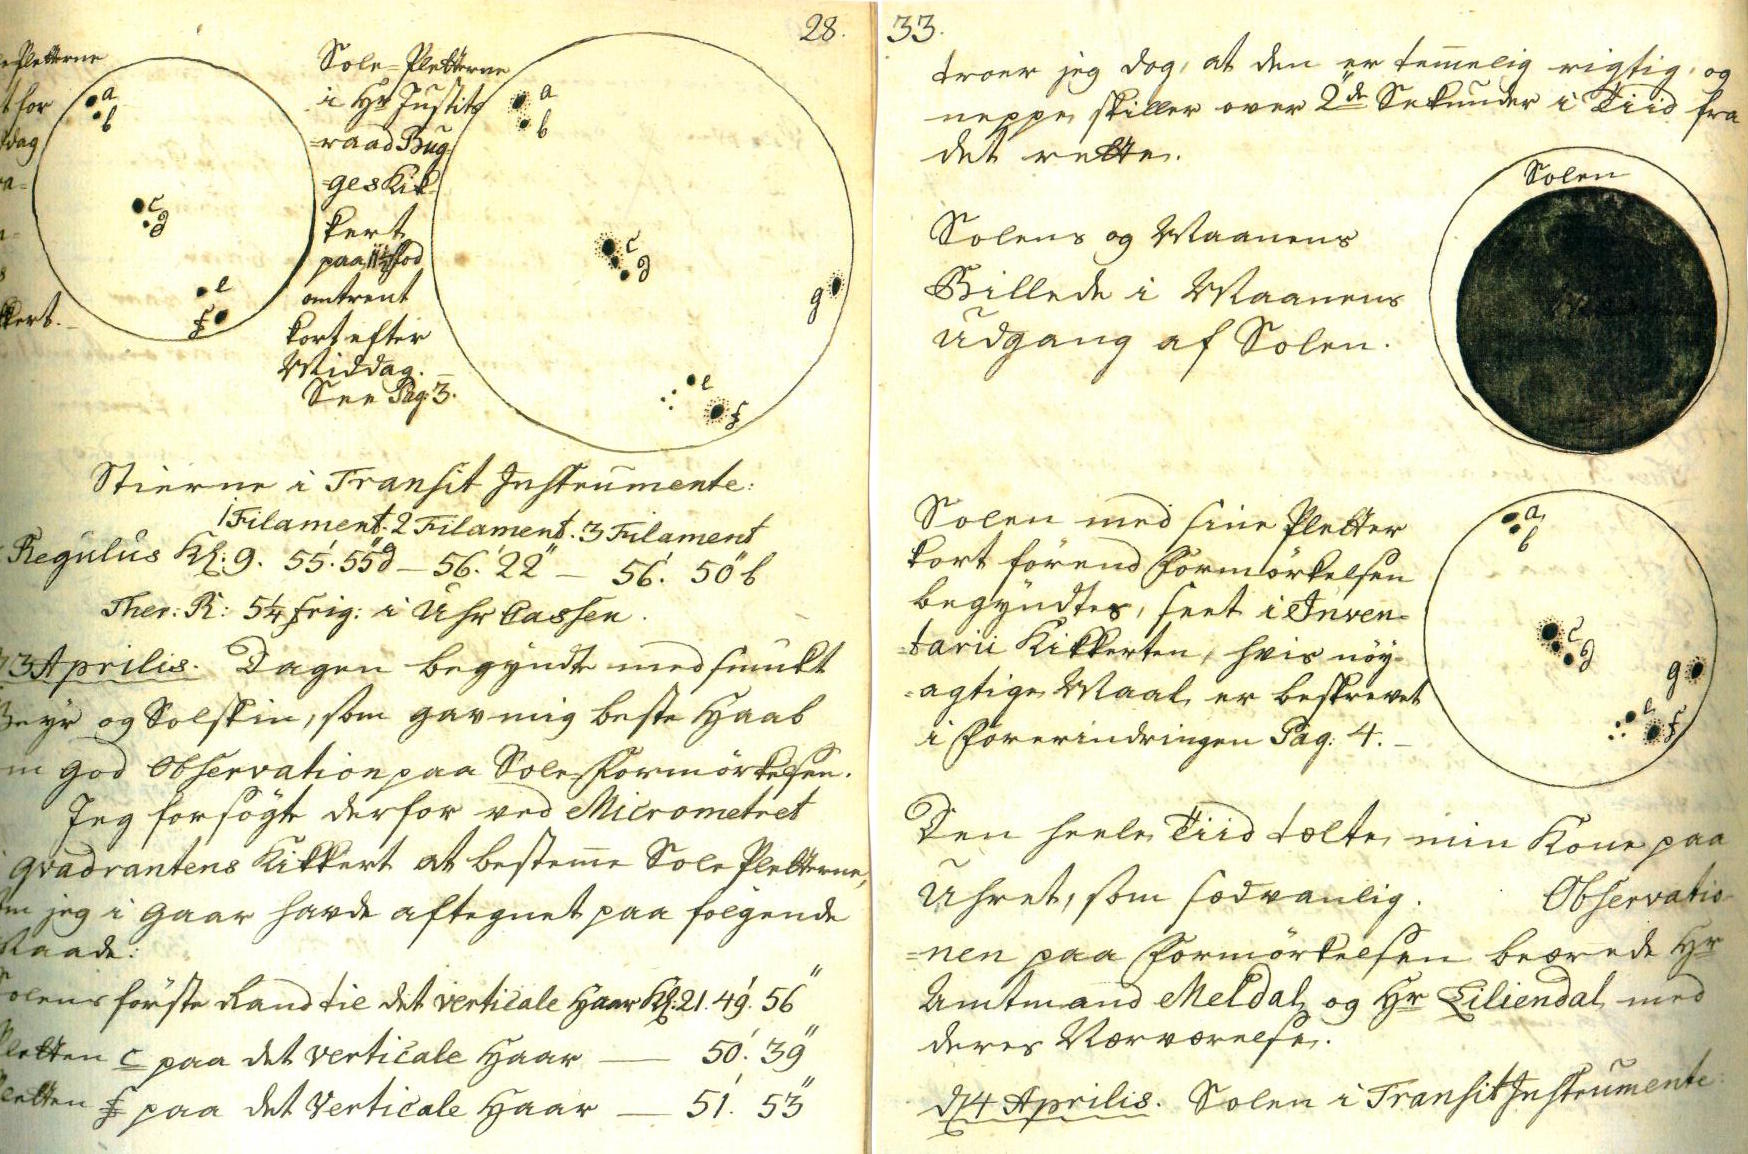 28.
Pletterne
for
dag
kkert.
a
b
c
d
e
f
Sole=Pletterne
i Hr Justits
=raad Bug
=ges Kik
kert
paa 11½ fod
omtrent
kort efter
Middag.
See Pag: 3.
a
b
c
d
g
e
f
Stierne i Transit Instrumente:
1 Filament. 2 Filament. 3 Filament
Regulus Kl: 9. 55'. 55"d — 56.' 22" — 56.' 50" b
Ther: R: 5¼ frig: i Uhr Cassen.
3 Aprilis. Dagen begyndte med smukt
Veyr og Solskin, som gav mig beste Haab
god Observation paa Sole Formörkelsen.
Jeg forsögte derfor ved Micrometret
qvadrantens Kikkert at bestem̄e Sole Pletterne,
jeg i Gaar havde aftegnet paa følgende
Maade:
Solens förste Rand til det verticale Haar Kl: 21. 49'. 56"
Pletten c paa det verticale Haar — 50'. 39"
Pletten f paa det Verticale Haar — 51'. 53"
33.
troer jeg dog, at den er tem̄elig rigtig, og
neppe skiller over 2de Sekunder i Tiid fra
det rette.
Solen
Solens og Maanens
Billede i Maanens
Udgang af Solen.
Solen med sine Pletter
kort förend Formörkelsen
begyndtes, seet i Inven=
=tarii Kikkerten, hvis nöy=
=agtige Maal er beskrevet
i Forerindringen Pag: 4.
a
b
c
d
g
e
f
Den heele Tiid tælte min Kone paa
Uhret, som sædvanlig. Observatio=
=nen paa Formörkelsen beærede Hr
Amtmand Meldal og Hr Liliendal med
deres Nærværelse.
d 4 Aprilis. Solen i Transit Instrumente: